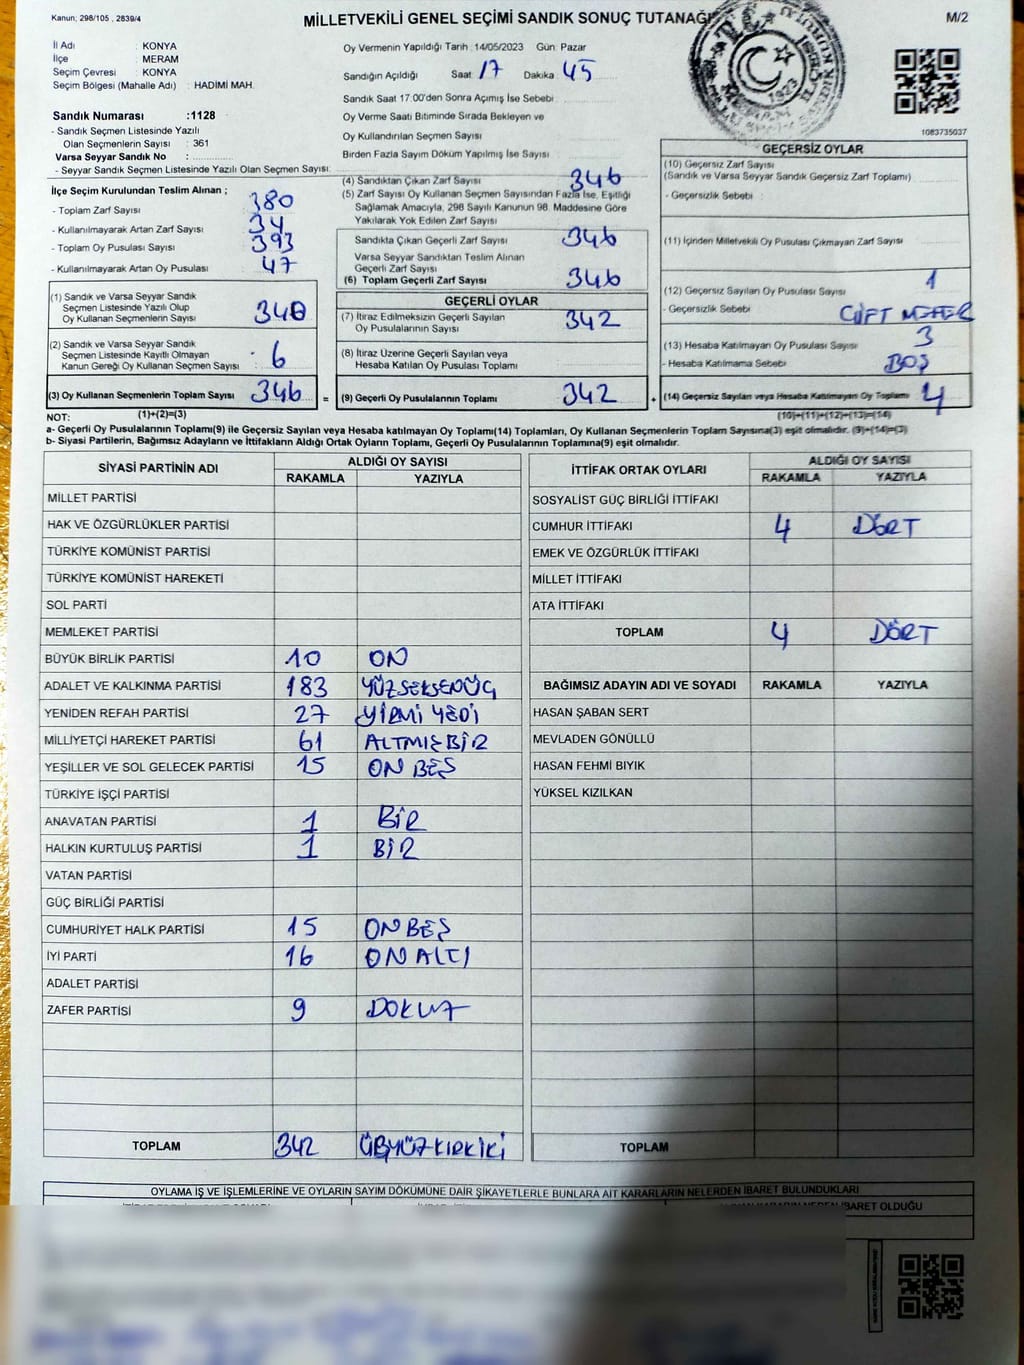 Kanun; 298/105 , 2839/4
MİLLETVEKİLİ GENEL SEÇİMİ SANDIK SONUÇ TUTANAĞI
M/2
İl Adı : KONYA
İlçe : MERAM
Seçim Çevresi : KONYA
Seçim Bölgesi (Mahalle Adı) : HADİMİ MAH.
Sandık Numarası :1128
- Sandık Seçmen Listesinde Yazılı
Olan Seçmenlerin Sayısı : 361
Varsa Seyyar Sandık No :
- Seyyar Sandık Seçmen Listesinde Yazılı Olan Seçmen Sayısı:
Oy Vermenin Yapıldığı Tarih :14/05/2023 Gün: Pazar
Sandığın Açıldığı Saat: 17 Dakika: 45
Sandık Saat 17:00'den Sonra Açımış İse Sebebi :
Oy Verme Saati Bitiminde Sırada Bekleyen ve
Oy Kullandırılan Seçmen Sayısı :
Birden Fazla Sayım Döküm Yapılmış İse Sayısı :
1083735037
İlçe Seçim Kurulundan Teslim Alınan ;
- Toplam Zarf Sayısı : 380
- Kullanılmayarak Artan Zarf Sayısı : 34
- Toplam Oy Pusulası Sayısı : 393
- Kullanılmayarak Artan Oy Pusulası : 47
(1) Sandık ve Varsa Seyyar Sandık
Seçmen Listesinde Yazılı Olup
Oy Kullanan Seçmenlerin Sayısı : 340
(2) Sandık ve Varsa Seyyar Sandık
Seçmen Listesinde Kayıtlı Olmayan
Kanun Gereği Oy Kullanan Seçmen Sayısı : 6
(3) Oy Kullanan Seçmenlerin Toplam Sayısı : 346
(1)+(2)=(3)
(4) Sandıktan Çıkan Zarf Sayısı : 346
(5) Zarf Sayısı Oy Kullanan Seçmen Sayısından Fazla İse, Eşitliği
Sağlamak Amacıyla, 298 Sayılı Kanunun 98. Maddesine Göre
Yakılarak Yok Edilen Zarf Sayısı :
Sandıkta Çıkan Geçerli Zarf Sayısı : 346
Varsa Seyyar Sandıktan Teslim Alınan
Geçerli Zarf Sayısı :
(6) Toplam Geçerli Zarf Sayısı : 346
GEÇERLİ OYLAR
(7) İtiraz Edilmeksizin Geçerli Sayılan
Oy Pusulalarının Sayısı : 342
(8) İtiraz Üzerine Geçerli Sayılan veya
Hesaba Katılan Oy Pusulası Toplamı :
= (9) Geçerli Oy Pusulalarının Toplamı : 342
GEÇERSİZ OYLAR
(10) Geçersiz Zarf Sayısı
(Sandık ve Varsa Seyyar Sandık Geçersiz Zarf Toplamı)
- Geçersizlik Sebebi :
(11) İçinden Milletvekili Oy Pusulası Çıkmayan Zarf Sayısı
(12) Geçersiz Sayılan Oy Pusulası Sayısı : 1
- Geçersizlik Sebebi : ÇİFT MÜHÜR
(13) Hesaba Katılmayan Oy Pusulası Sayısı : 3
- Hesaba Katılmama Sebebi : BOŞ
+ (14) Geçersiz Sayılan veya Hesaba Katılmayan Oy Toplamı 4
(10)+(11)+(12)+(13)=(14)
NOT:
a- Geçerli Oy Pusulasının Toplamı(9) ile Geçersiz Sayılan veya Hesaba katılmayan Oy Toplamı(14) Toplamları, Oy Kullanan Seçmenlerin Toplam Sayısına(3) eşit olmalıdır. (9)+(14)=(3)
b- Siyasi Partilerin, Bağımsız Adayların ve İttifakların Aldığı Ortak Oyların Toplamı, Geçerli Oy Pusulalarının Toplamına(9) eşit olmalıdır.
SİYASİ PARTİNİN ADI ALDIĞI OY SAYISI
RAKAMLA YAZIYLA
MİLLET PARTİSİ
HAK VE ÖZGÜRLÜKLER PARTİSİ
TÜRKİYE KOMÜNİST PARTİSİ
TÜRKİYE KOMÜNİST HAREKETİ
SOL PARTİ
MEMLEKET PARTİSİ
BÜYÜK BİRLİK PARTİSİ 10 ON
ADALET VE KALKINMA PARTİSİ 183 YÜZSEKSENÜÇ
YENİDEN REFAH PARTİSİ 27 YİRMİ YEDİ
MİLLİYETÇİ HAREKET PARTİSİ 61 ALTMIŞBİR
YEŞİLLER VE SOL GELECEK PARTİSİ 15 ON BEŞ
TÜRKİYE İŞÇİ PARTİSİ
ANAVATAN PARTİSİ 1 BİR
HALKIN KURTULUŞ PARTİSİ 1 BİR
VATAN PARTİSİ
GÜÇ BİRLİĞİ PARTİSİ
CUMHURİYET HALK PARTİSİ 15 ON BEŞ
İYİ PARTİ 16 ON ALTI
ADALET PARTİSİ
ZAFER PARTİSİ 9 DOKUZ
TOPLAM 342 ÜÇYÜZKIRKİKİ
İTTİFAK ORTAK OYLARI ALDIĞI OY SAYISI
RAKAMLA YAZIYLA
SOSYALİST GÜÇ BİRLİĞİ İTTİFAKI
CUMHUR İTTİFAKI 4 DÖRT
EMEK VE ÖZGÜRLÜK İTTİFAKI
MİLLET İTTİFAKI
ATA İTTİFAKI
TOPLAM 4 DÖRT
BAĞIMSIZ ADAYIN ADI VE SOYADI RAKAMLA YAZIYLA
HASAN ŞABAN SERT
MEVLADEN GÖNÜLLÜ
HASAN FEHMİ BIYIK
YÜKSEL KIZILKAN
TOPLAM
OYLAMA İŞ VE İŞLEMLERİNE VE OYLARIN SAYIM DÖKÜMÜNE DAİR ŞİKAYETLERLE BUNLARA AİT KARARLARIN NELERDEN İBARET BULUNDUKLARI